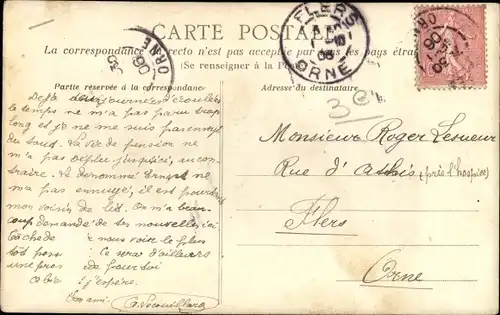 CARTE POSTALE
La correspondance au recto n'est pas acceptée par tous les pays étran
(Se renseigner à la Poste)
Partie réservée à la correspondance
Adresse du destinataire
FLERS
ORNE
ORNE
06
Déjà deux journées d'écoulées
le temps ne m'a pas paru trop
long et je ne me suis pas ennuyé
du tout. La vie de pension ne
m'a pas déplu jusqu'ici, au con-
traire. Le dénommé Ernest ne
m'a pas ennuyé, il est pourtant
mon voisin de lit. On m'a beau-
coup demandé de tes nouvelles ici
Tâche de nous voir le plus
tôt ce sera d'ailleurs
une pour toi
j'espère.
Ton ami
Monsieur Roger Lesueur
Rue d'Athis (près l'hospice)
Flers
Orne